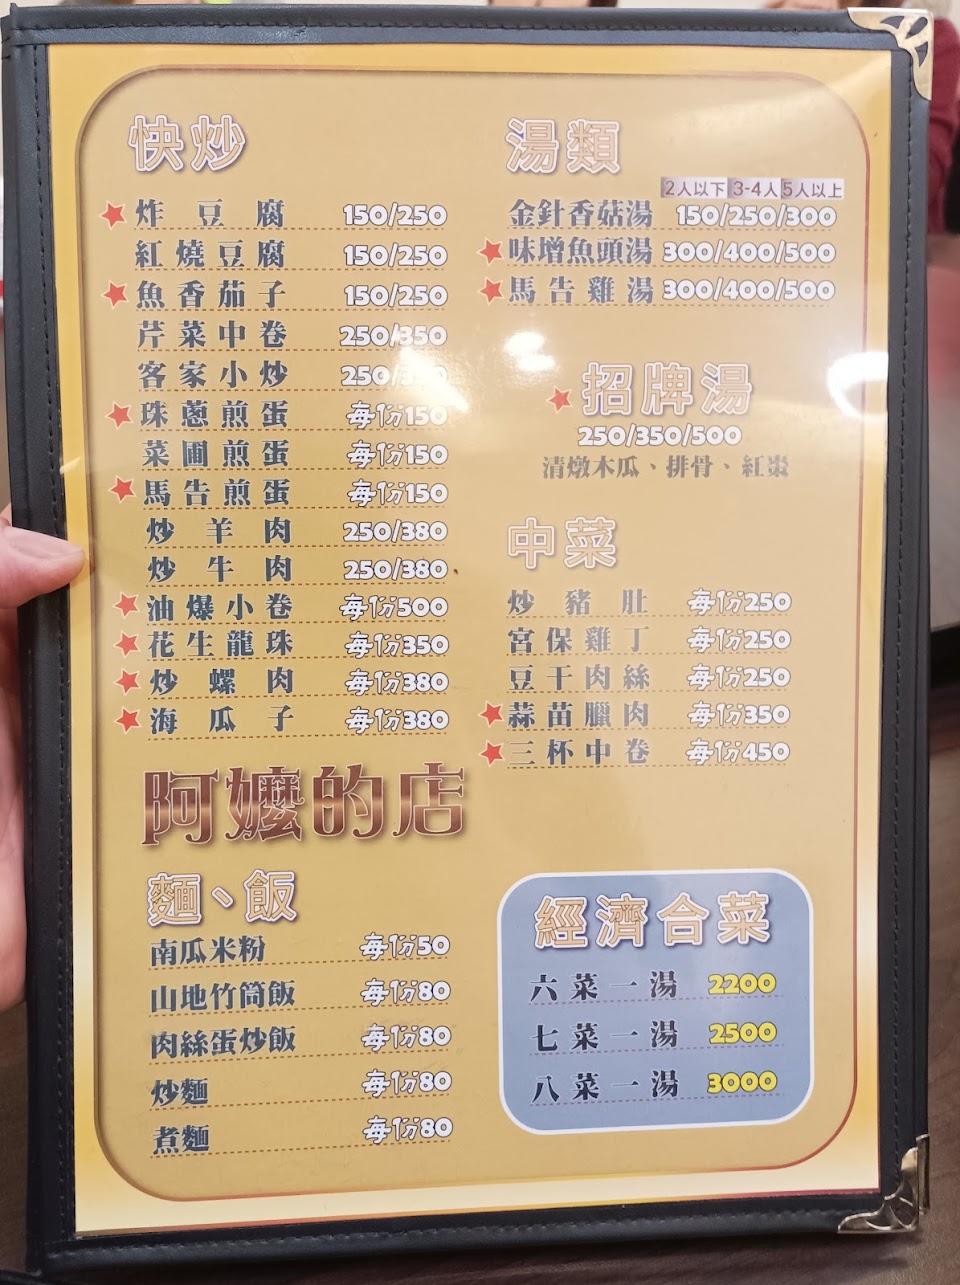 快炒
炸豆腐 150/250
紅燒豆腐 150/250
魚香茄子 150/250
芹菜中卷 250/350
客家小炒 250/
珠蔥煎蛋 每份150
菜圃煎蛋 每份150
馬告煎蛋 每份150
炒羊肉 250/380
炒牛肉 250/380
油爆小卷 每份500
花生龍珠 每份350
炒螺肉 每份380
海瓜子 每份380
阿嬤的店
麵、飯
南瓜米粉 每份50
山地竹筒飯 每份80
肉絲蛋炒飯 每份80
炒麵 每份80
煮麵 每份80
湯類
2人以下 3-4人 5人以上
金針香菇湯 150/250/300
味增魚頭湯 300/400/500
馬告雞湯 300/400/500
招牌湯
250/350/500
清燉木瓜、排骨、紅棗
中菜
炒豬肚 每份250
宮保雞丁 每份250
豆干肉絲 每份250
蒜苗臘肉 每份350
三杯中卷 每份450
經濟合菜
六菜一湯 2200
七菜一湯 2500
八菜一湯 3000